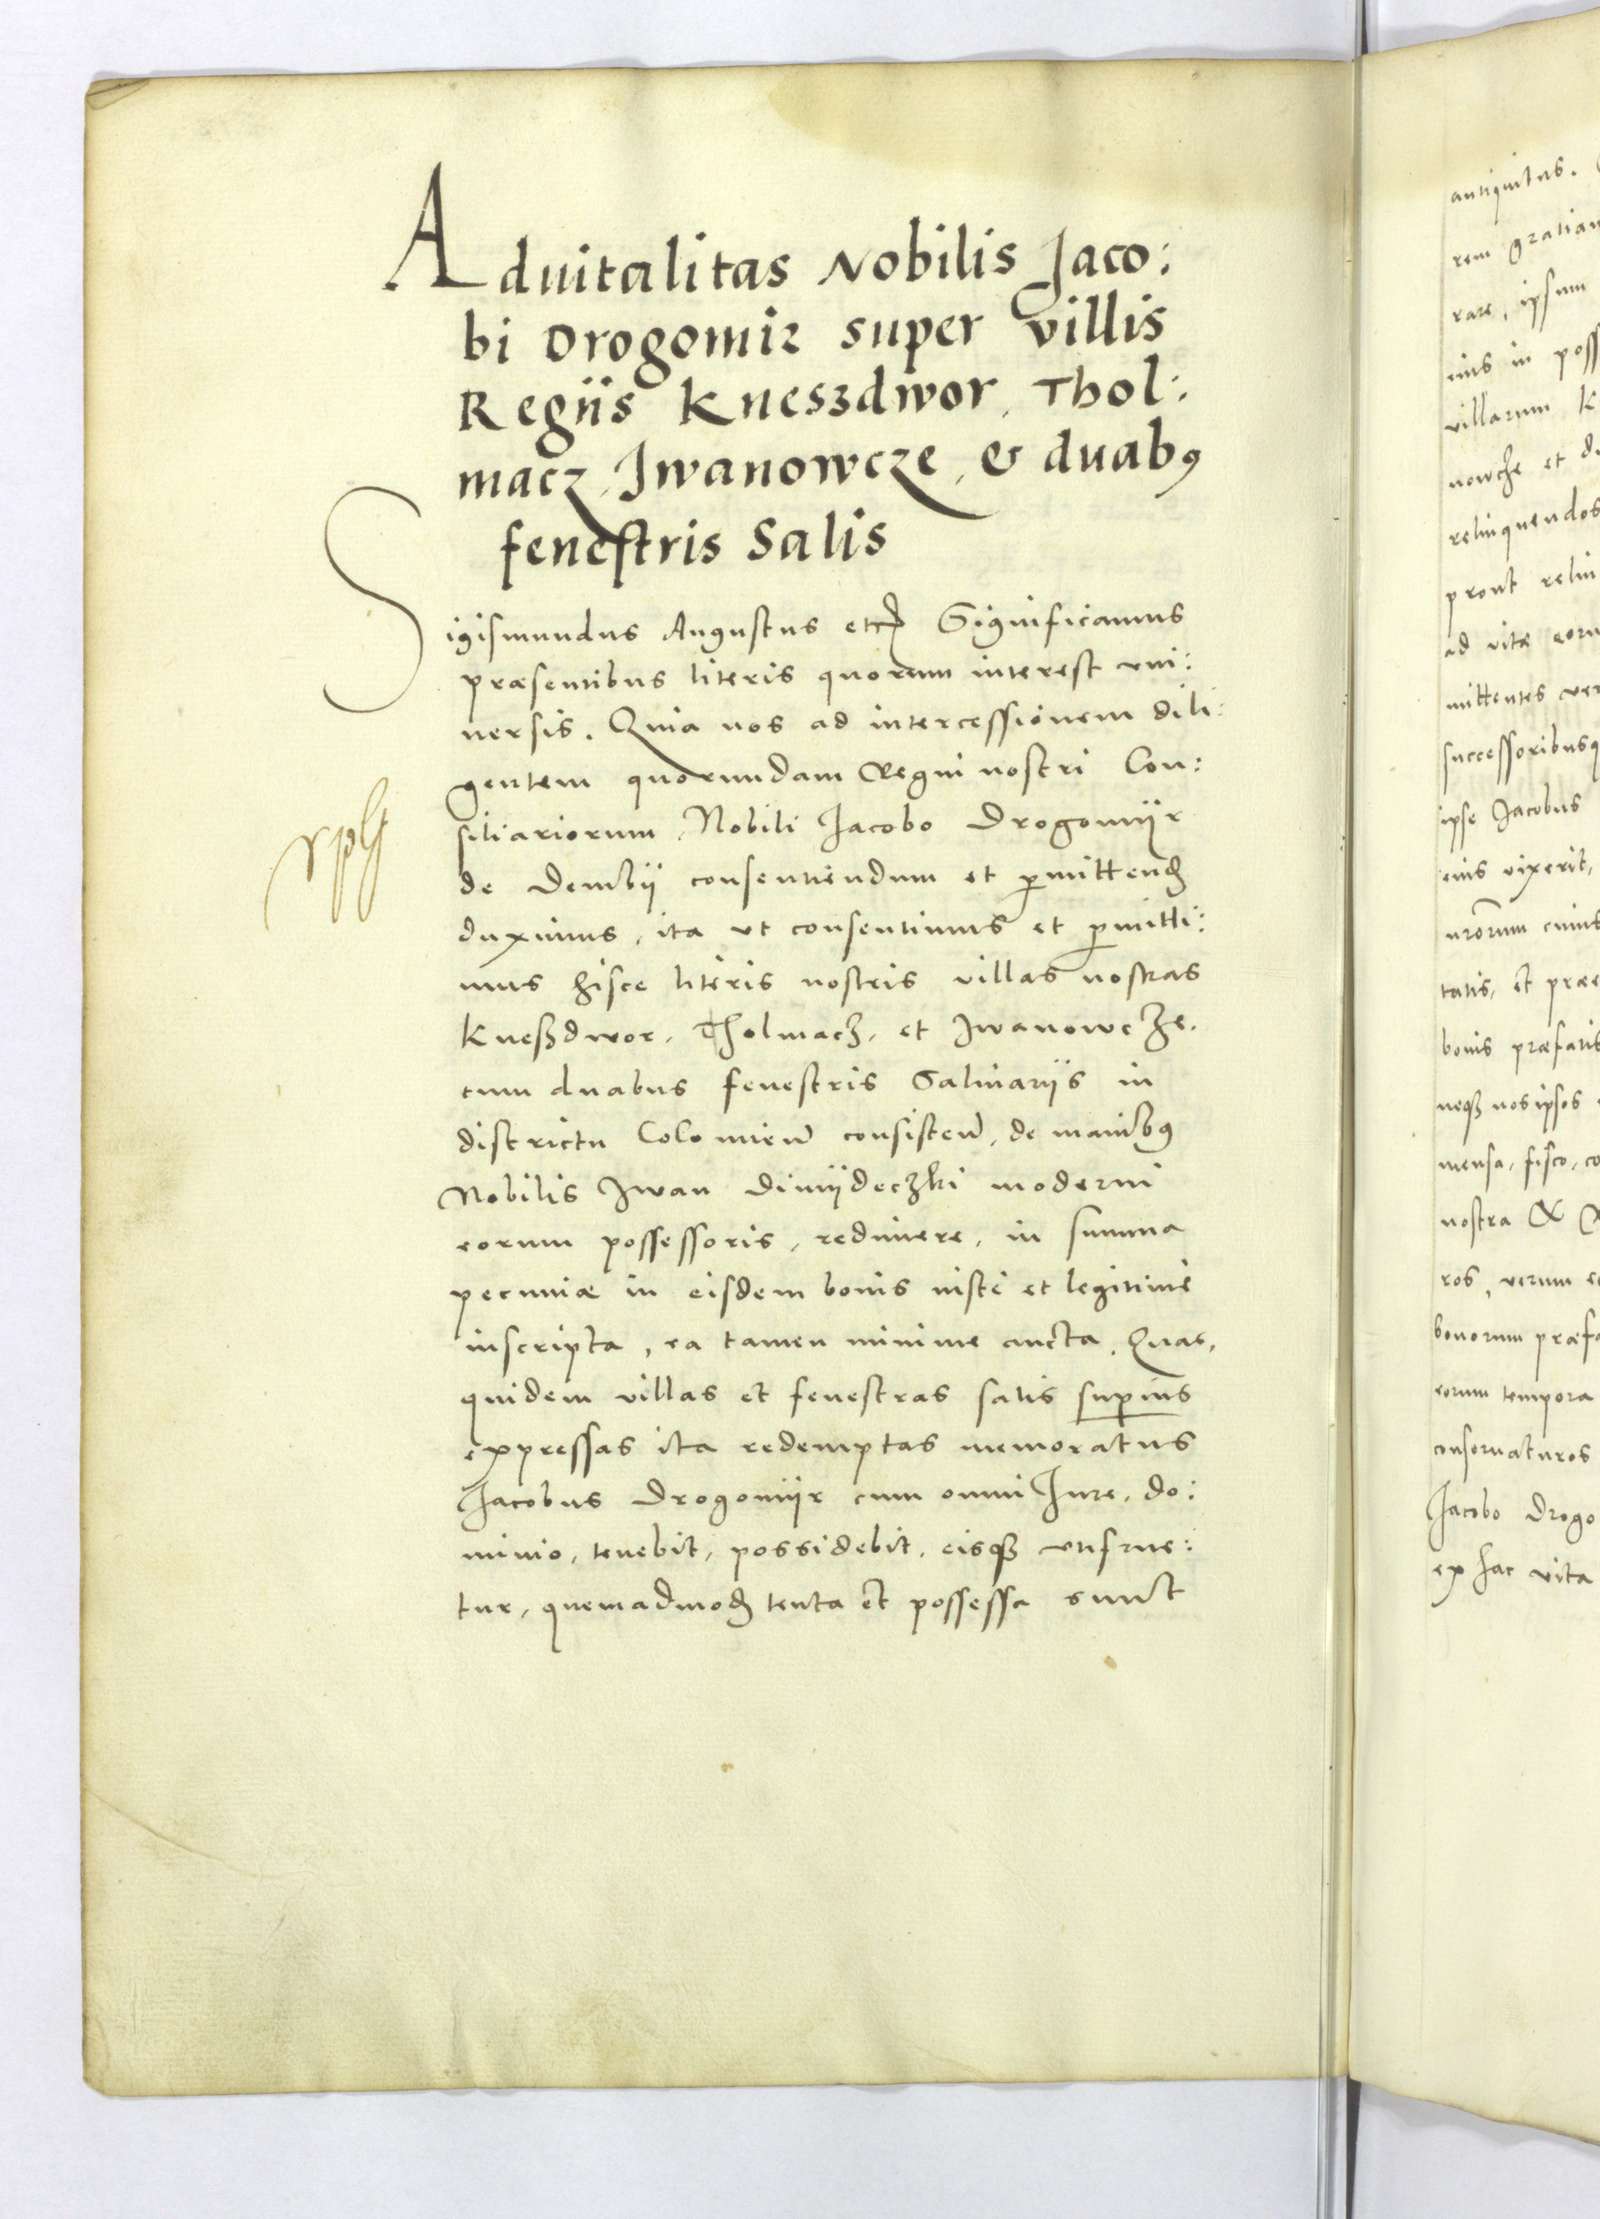 Aduitalitas Nobilis Jaco:
bi Drogomir super villis
Regiis Kneszdwor, Thol:
macz, Iwanowcze, & duabꝯ
fenestris Salis
Sigismundus Augustus etc Significamus
præsentibus literis quorum interest vni:
uersis. Quia nos ad intercessionem dili:
gentem quorundam Regni nostri Con:
siliariorum, Nobili Jacobo Drogomijr
de Dembij consentiendum et ꝑmittend
duximus, ita vt consentimus et ꝑmitti:
mus hisce literis nostris villas nostras
Kneszdwor, Tholmacz, et Iwanowcze,
cum duabus fenestris Salinarijs in
districtu Colomien̄ consisten̄, de manibꝯ
Nobilis Iwan Dimijdeczki moderni
eorum possessoris, redimere, in summa
pecuniæ in eisdem bonis iuste et legitime
inscripta, ea tamen minime aucta, Quas,
quidem villas et fenestras salis suꝑius
expressas ita redemptas memoratus
Jacobus Drogomijr cum omni Iure, do:
minio, tenebit, possidebit, eisqꝫ vtifrue:
tur, quemadmod tenta et possessa sunt
antiquitus.
rem gratiam
rare, ipsum
eius in poss
villarum K
nowcze et d
relinquendos
prout relin
ad vitæ eoru
mittentes ver
successoribusq
ipse Jacobus
eius vixerit,
nrōrum cuius
tatis, et præe
bonis præfatis
neqꝫ nos ipsos
mensa, fisco, co
nostra &
ros, verum e
bonorum præfa
eorum tempora
conseruaturos
Jacobo Drogo
ex hac vita